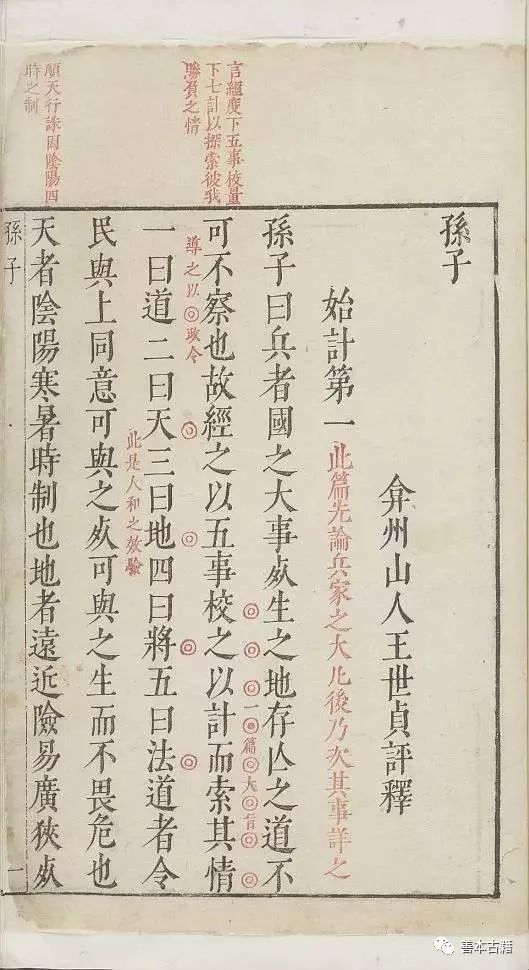 孫子
弇州山人王世貞評釋
始計第一此篇先論兵家之大凡後乃次其事詳之
孫子曰兵者國之大事死生之地存亡之道不
一篇大旨
可不察也故經之以五事校之以計而索其情
言經度下五事校量
下七計以探索彼我
勝負之情
導之以政令
一曰道二曰天三曰地四曰將五曰法道者令
此是人和之效驗
民與上同意可與之死可與之生而不畏危也
順天行誅因陰陽四
時之制
天者陰陽寒暑時制也地者遠近險易廣狹死
孫子
一
善本古籍